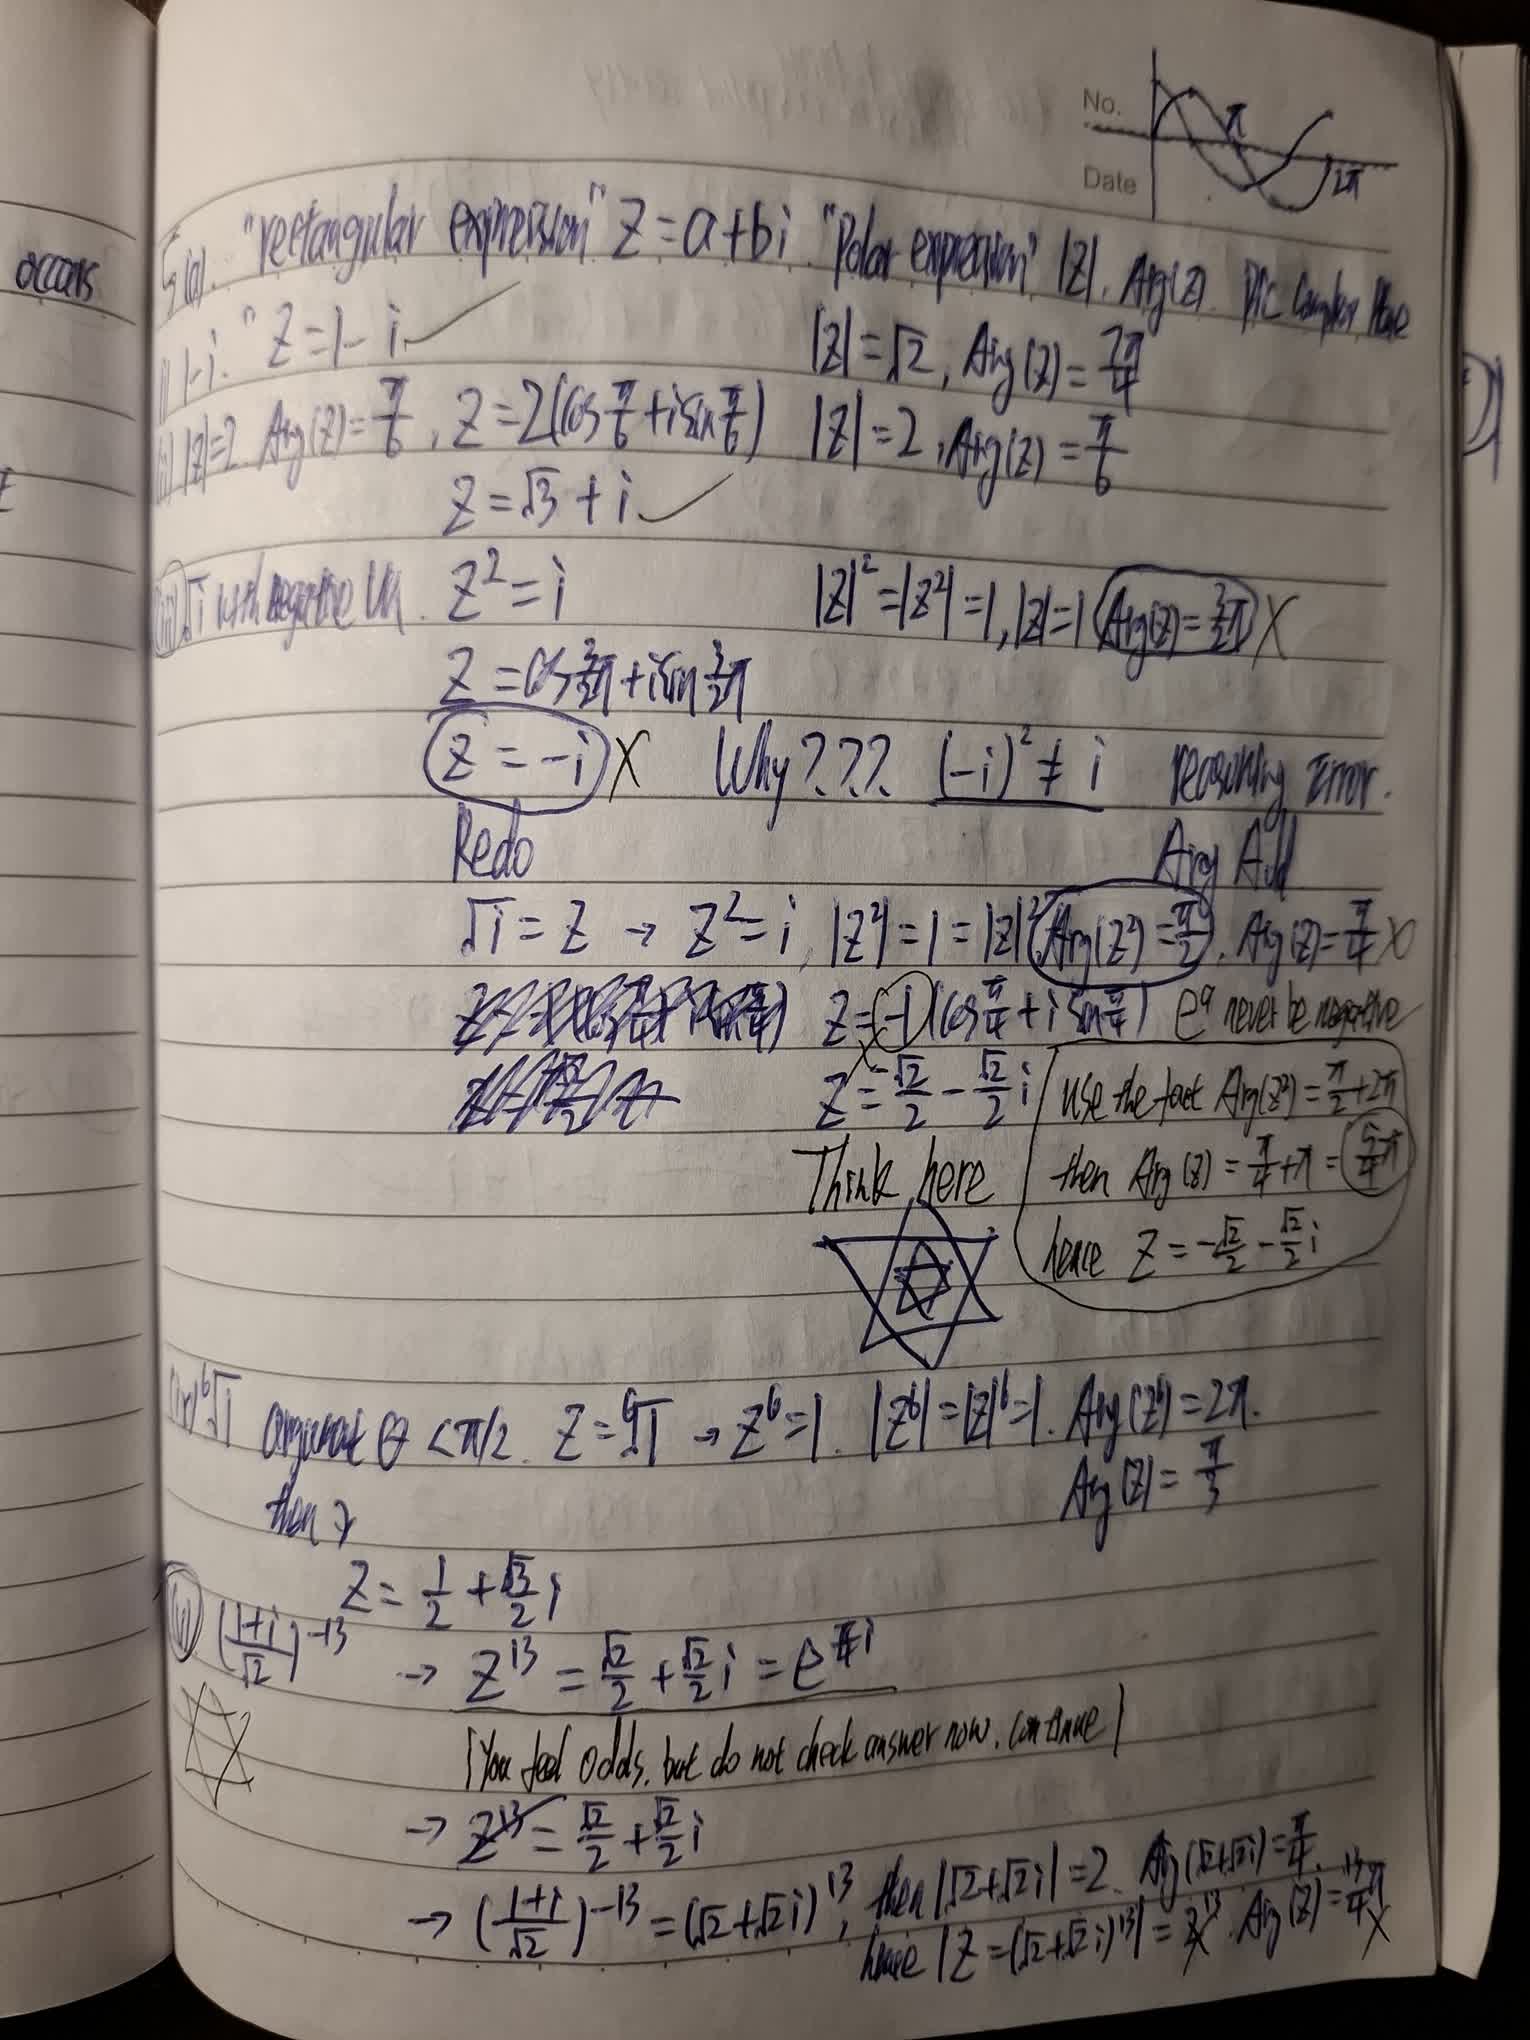 No.
π
Date
2π
occurs
5 (a). "rectangular expression" z = a+bi "Polar expression" |z|, Arg(z).
1-i. z = 1-i ✓ |z| = √2, Arg(z) = 7π/4
|z|=2 Arg(z)=π/6, z = 2(cos π/6 + i sin π/6) |z| = 2, Arg(z) = π/6
z = √3 + i ✓
(iii) √i with negative z² = i |z|² = |z²| = 1, |z| = 1 Arg(z) = 3/2π X
z = cos 3/2π + i sin 3/2π
z = -i X Why??? (-i)² ≠ i reasoning Error.
Redo Arg Add
√i = z → z² = i, |z²| = 1 = |z|² Arg(z²) = π/2. Arg(z) = π/4 X
z = -1(cos π/4 + i sin π/4) never be negative
z = -√2/2 - √2/2 i
use the fact Arg(z²) = π/2+2π
then Arg(z) = π/4+π = 5/4π
hence z = -√2/2 - √2/2 i
Think here
(iv) ⁶√1 argument θ < π/2. z = ⁶√1 → z⁶ = 1. |z⁶| = |z|⁶ = 1. Arg(z⁶) = 2π.
then Arg(z) = π/3
z = 1/2 + √3/2 i
(v) ((1+i)/√2)^-13 → z^13 = √2/2 + √2/2 i = e^(π/4 i)
You feel odds, but do not check answer now. continue
→ z^13 = √2/2 + √2/2 i
→ ((1+i)/√2)^-13 = (√2+√2i)^13, then |√2+√2i| = 2. Arg(√2+√2i) = π/4.
hence |z = (√2+√2i)^13| = 2^13. Arg(z) = 13/4π X